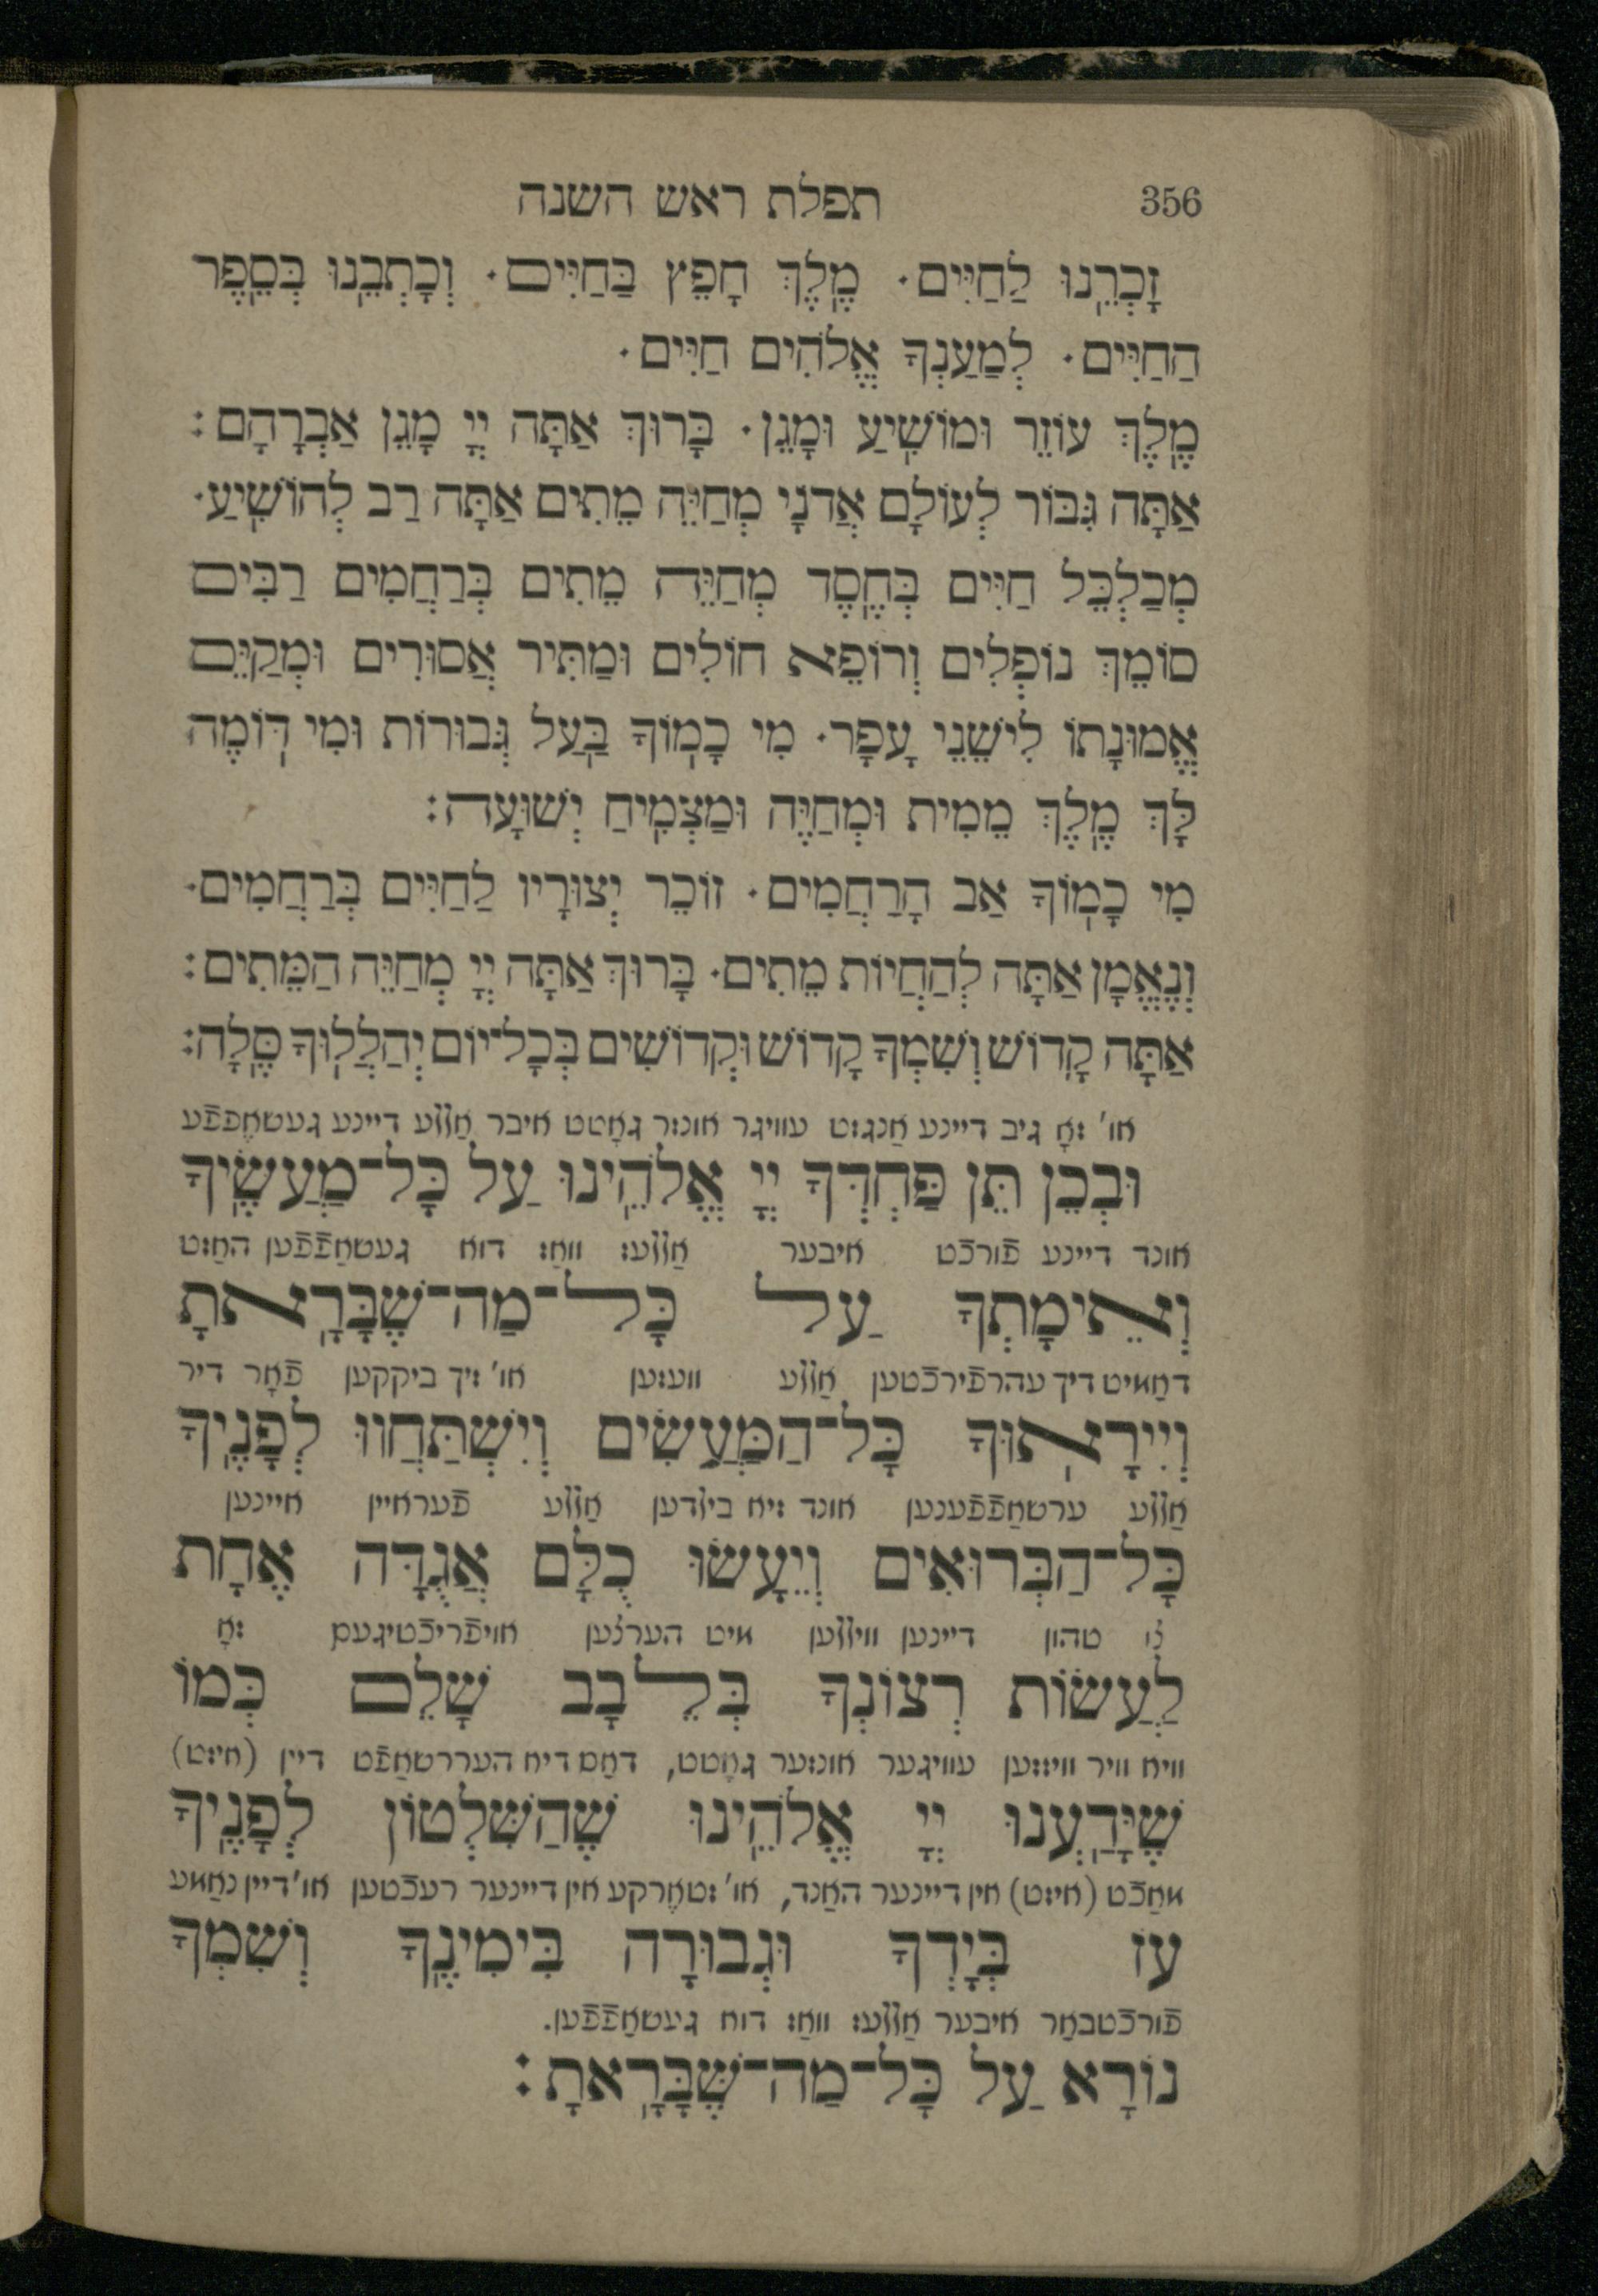 תפלת ראש השנה 356
זָכְרֵֽנוּ לַחַיִּים · מֶֽלֶךְ חָפֵץ בַּחַיִּים · וְכָתְבֵֽנוּ בְּסֵֽפֶר
הַחַיִּים · לְמַעַנְךָ אֱלֹהִים חַיִּים ·
מֶֽלֶךְ עוֹזֵר וּמוֹשִֽׁיעַ וּמָגֵן · בָּרוּךְ אַתָּה יְיָ מָגֵן אַבְרָהָם :
אַתָּה גִּבּוֹר לְעוֹלָם אֲדֹנָי מְחַיֵּה מֵתִים אַתָּה רַב לְהוֹשִֽׁיעַ ·
מְכַלְכֵּל חַיִּים בְּחֶֽסֶד מְחַיֵּה מֵתִים בְּרַחֲמִים רַבִּים
סוֹמֵךְ נוֹפְלִים וְרוֹפֵא חוֹלִים וּמַתִּיר אֲסוּרִים וּמְקַיֵּם
אֱמוּנָתוֹ לִישֵׁנֵי עָפָר · מִי כָמֽוֹךָ בַּֽעַל גְּבוּרוֹת וּמִי דּֽוֹמֶה
לָּךְ מֶֽלֶךְ מֵמִית וּמְחַיֶּה וּמַצְמִֽיחַ יְשׁוּעָה :
מִי כָמֽוֹךָ אַב הָרַחֲמִים · זוֹכֵר יְצוּרָיו לַחַיִּים בְּרַחֲמִים ·
וְנֶאֱמָן אַתָּה לְהַחֲיוֹת מֵתִים · בָּרוּךְ אַתָּה יְיָ מְחַיֵּה הַמֵּתִים :
אַתָּה קָדוֹשׁ וְשִׁמְךָ קָדוֹשׁ וּקְדוֹשִׁים בְּכָל־יוֹם יְהַלְלֽוּךָ סֶּֽלָה :
או' זאָ גיב דיינע אַנגזט עוויגר אונזר גאָטט איבר אַללע דיינע געשאֶפפֿע
וּבְכֵן תֵּן פַּחְדְּךָ יְיָ אֱלֹהֵֽינוּ עַל כָּל־מַעֲשֶֽׂיךָ
אונד דיינע פֿורכֿט איבער אַללעז וואַז דוא געשאַפֿפֿען האַזט
וְאֵימָתְךָ עַל כָּל־מַה־שֶּׁבָּרָֽאתָ
דאַמיט דיך עהרפֿירכֿטען אַללע וועזען או' זיך ביקקען פֿאָר דיר
וְיִירָאֽוּךָ כָּל־הַמַּעֲשִׂים וְיִשְׁתַּחֲווּ לְפָנֶֽיךָ
אַללע ערשאַפֿפֿענען אונד זיא בילדען אַללע פֿעראיין איינען
כָּל־הַבְּרוּאִים וְיֵעָשׂוּ כֻלָּם אֲגֻדָּה אֶחָת
צו טהון דיינען ווילללען מיט הערצען אויפֿריכֿטיגעם זאָ
לַעֲשׂוֹת רְצוֹנְךָ בְּלֵבָב שָׁלֵם כְּמוֹ
וויא וויר וויזזען עוויגער אונזער גאָטט, דאַס דיא העררשאַפֿט דיין (איזט)
שֶׁיָּדַֽעְנוּ יְיָ אֱלֹהֵֽינוּ שֶׁהַשִּׁלְטוֹן לְפָנֶֽיךָ
מאַכֿט (איזט) אין דיינער האַנד, או' שטאֶרקע אין דיינער רעכֿטען או' דיין נאַמע
עֹז בְּיָדְךָ וּגְבוּרָה בִּימִינֶֽךָ וְשִׁמְךָ
פֿורכֿטבאַר איבער אַללעז וואַז דוא געשאַפֿפֿען.
נוֹרָא עַל כָּל־מַה־שֶּׁבָּרָֽאתָ :